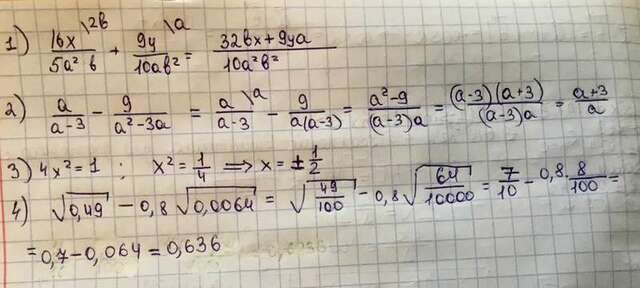 1) 16x\2b / 5a²b + 9y\a / 10ab² = 32bx+9ya / 10a²b²
2) a / a-3 - 9 / a²-3a = a\a / a-3 - 9 / a(a-3) = a²-9 / (a-3)a = (a-3)(a+3) / (a-3)a = a+3 / a
3) 4x²=1 ; x²= 1/4 ⟹ x = ± 1/2
4) √0,49 - 0,8 √0,0064 = √49/100 - 0,8 √64/10000 = 7/10 - 0,8 · 8/100 =
= 0,7 - 0,064 = 0,636